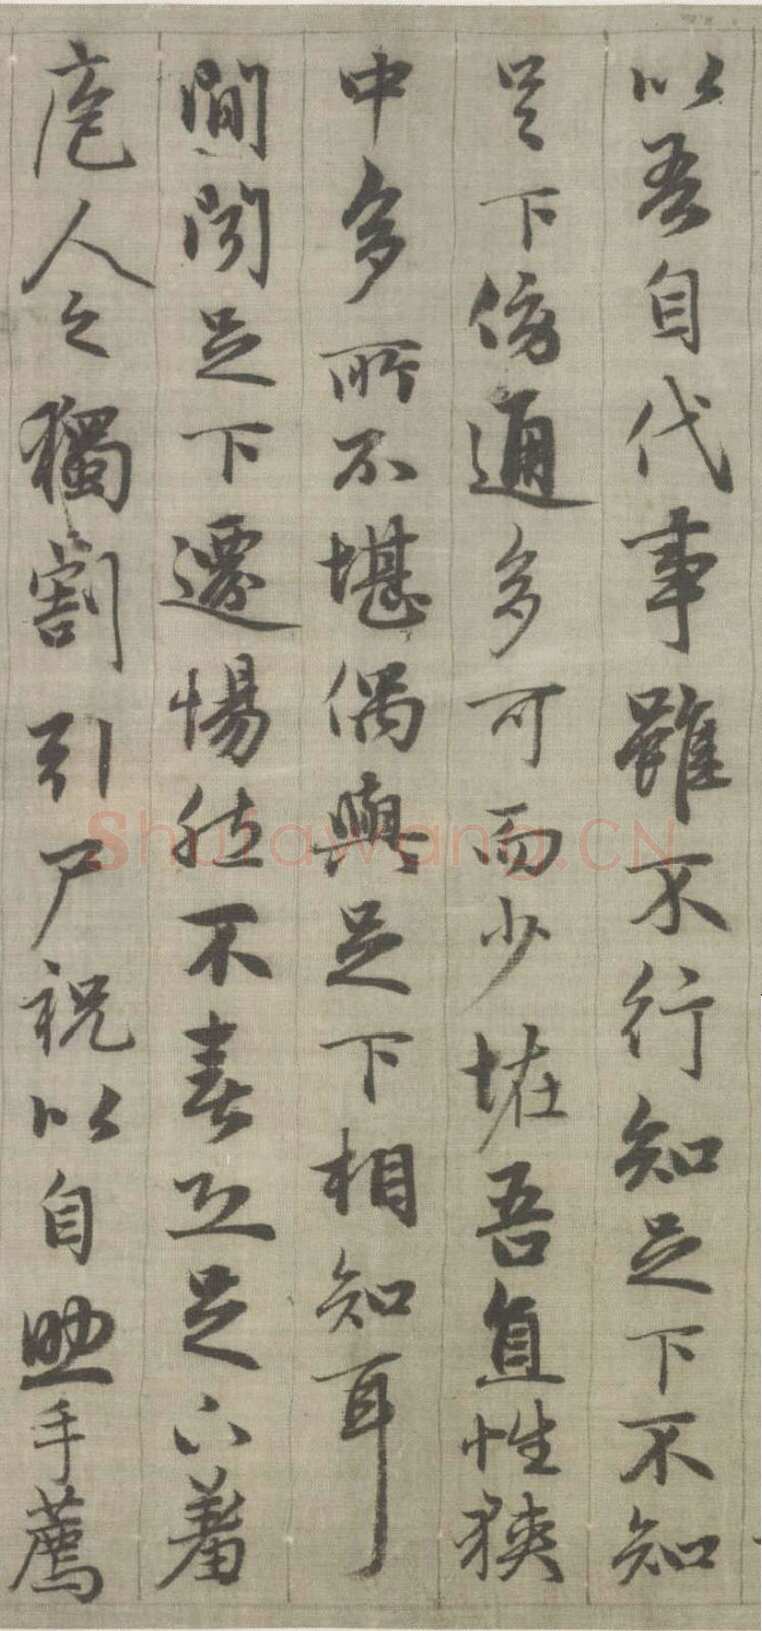 以吾自代事雖不行知足下不知
足下傍通多可而少恠吾直性狹
中多所不堪偶與足下相知耳
間聞足下遷惕然不喜恐足下羞
庖人之獨割引尸祝以自助手薦
Shufawang.CN